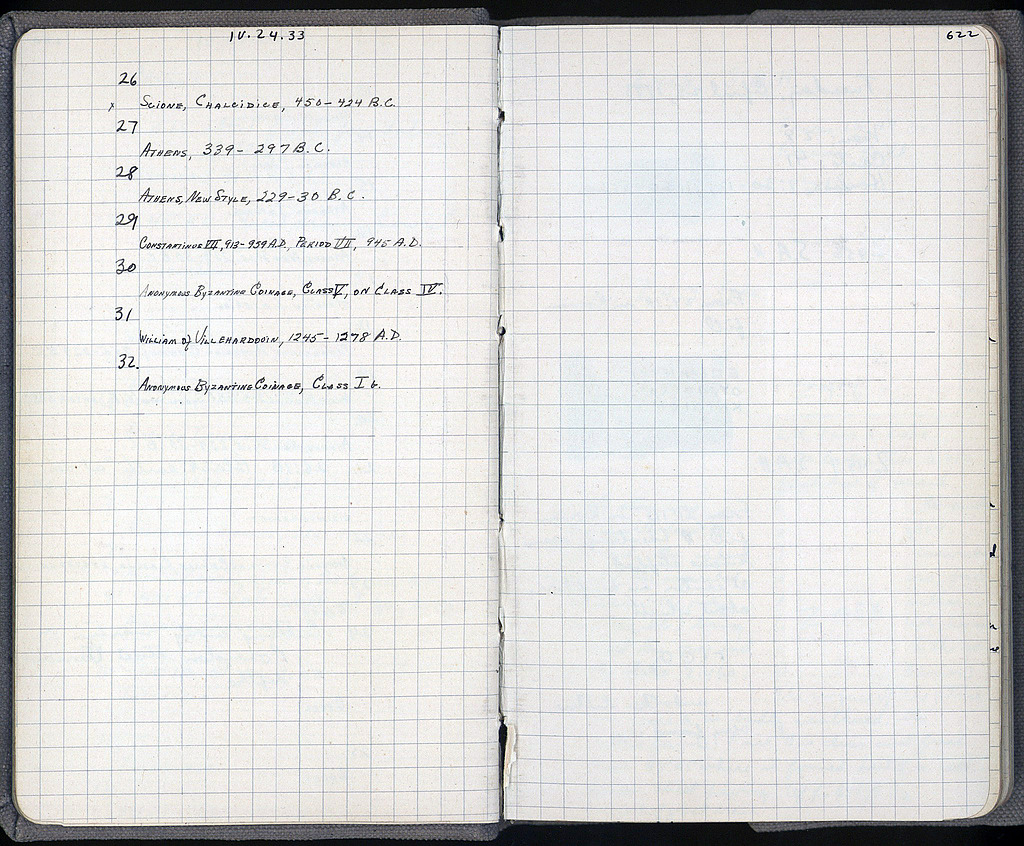 IV.24.33
622
26
x Scione, Chalcidice, 450-424 B.C.
27
Athens, 339- 297 B.C.
28
Athens, New Style, 229-30 B.C.
29
Constantinus VII, 913-959 A.D., Period VII, 945 A.D.
30
Anonymous Byzantine Coinage, Class V, on Class IV.
31
William of Villehardouin, 1245-1278 A.D.
32.
Anonymous Byzantine Coinage, Class I b.